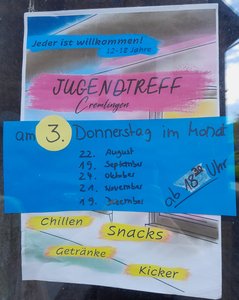 Jeder ist willkommen!
12-18 Jahre
JUGENDTREFF
Cremlingen
am 3. Donnerstag im Monat
22. August
19. September
24. Oktober
21. November
19. Dezember
ab 18:00 Uhr
Chillen
Snacks
Getränke
Kicker